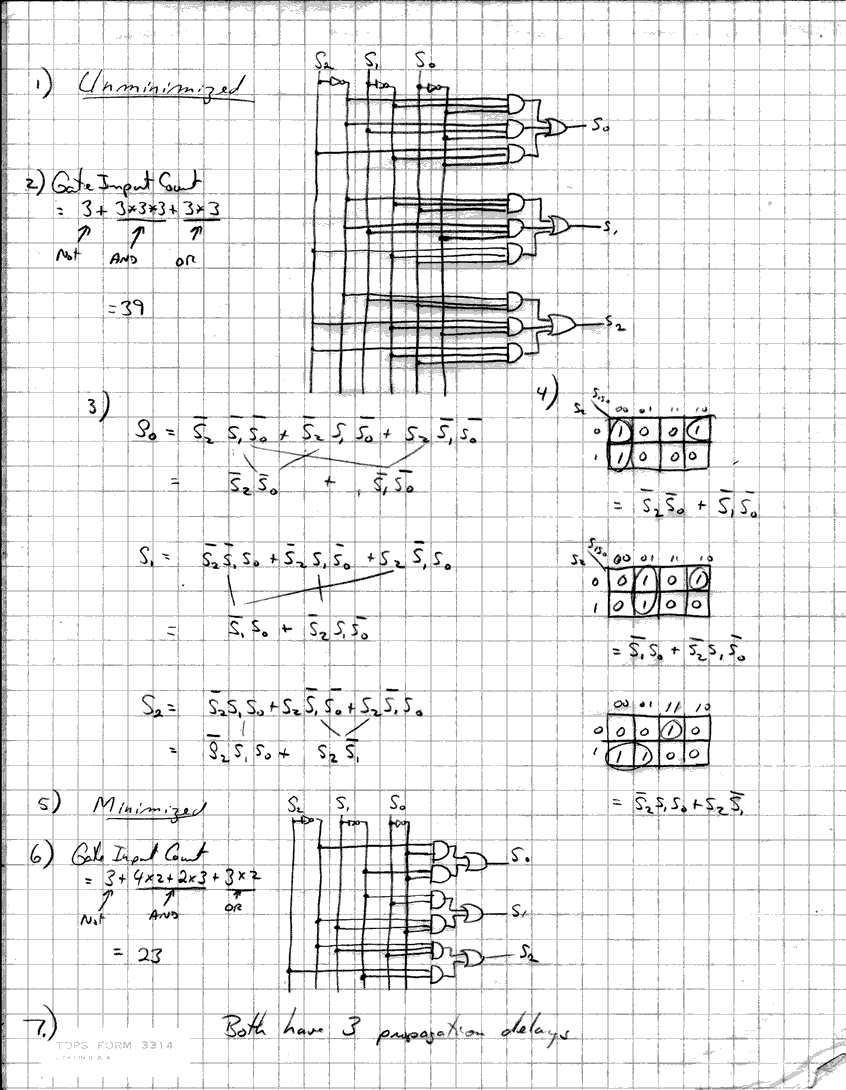 1) Unminimized
S₂ S₁ S₀
S₀
2) Gate Input Count
= 3 + 3×3×3 + 3×3
Not AND OR
= 39
S₁
S₂
3)
S₀ = S̅₂ S̅₁ S̅₀ + S̅₂ S₁ S̅₀ + S₂ S̅₁ S̅₀
= S̅₂ S̅₀ + S̅₁ S̅₀
S₁ = S̅₂ S̅₁ S₀ + S̅₂ S₁ S̅₀ + S₂ S̅₁ S₀
= S̅₁ S₀ + S̅₂ S₁ S̅₀
S₂ = S̅₂ S₁ S₀ + S₂ S̅₁ S̅₀ + S₂ S̅₁ S₀
= S̅₂ S₁ S₀ + S₂ S̅₁
4)
S₂ S₁S₀ 00 01 11 10
0 1 0 0 1
1 1 0 0 0
= S̅₂ S̅₀ + S̅₁ S̅₀
S₂ S₁S₀ 00 01 11 10
0 0 1 0 1
1 0 1 0 0
= S̅₁ S₀ + S̅₂ S₁ S̅₀
00 01 11 10
0 0 0 1 0
1 1 1 0 0
= S̅₂ S₁ S₀ + S₂ S̅₁
5) Minimized
S₂ S₁ S₀
6) Gate Input Count
= 3 + 4×2 + 2×3 + 3×2
Not AND OR
= 23
S₀
S₁
S₂
7.) Both have 3 propagation delays
TOPS FORM 3314